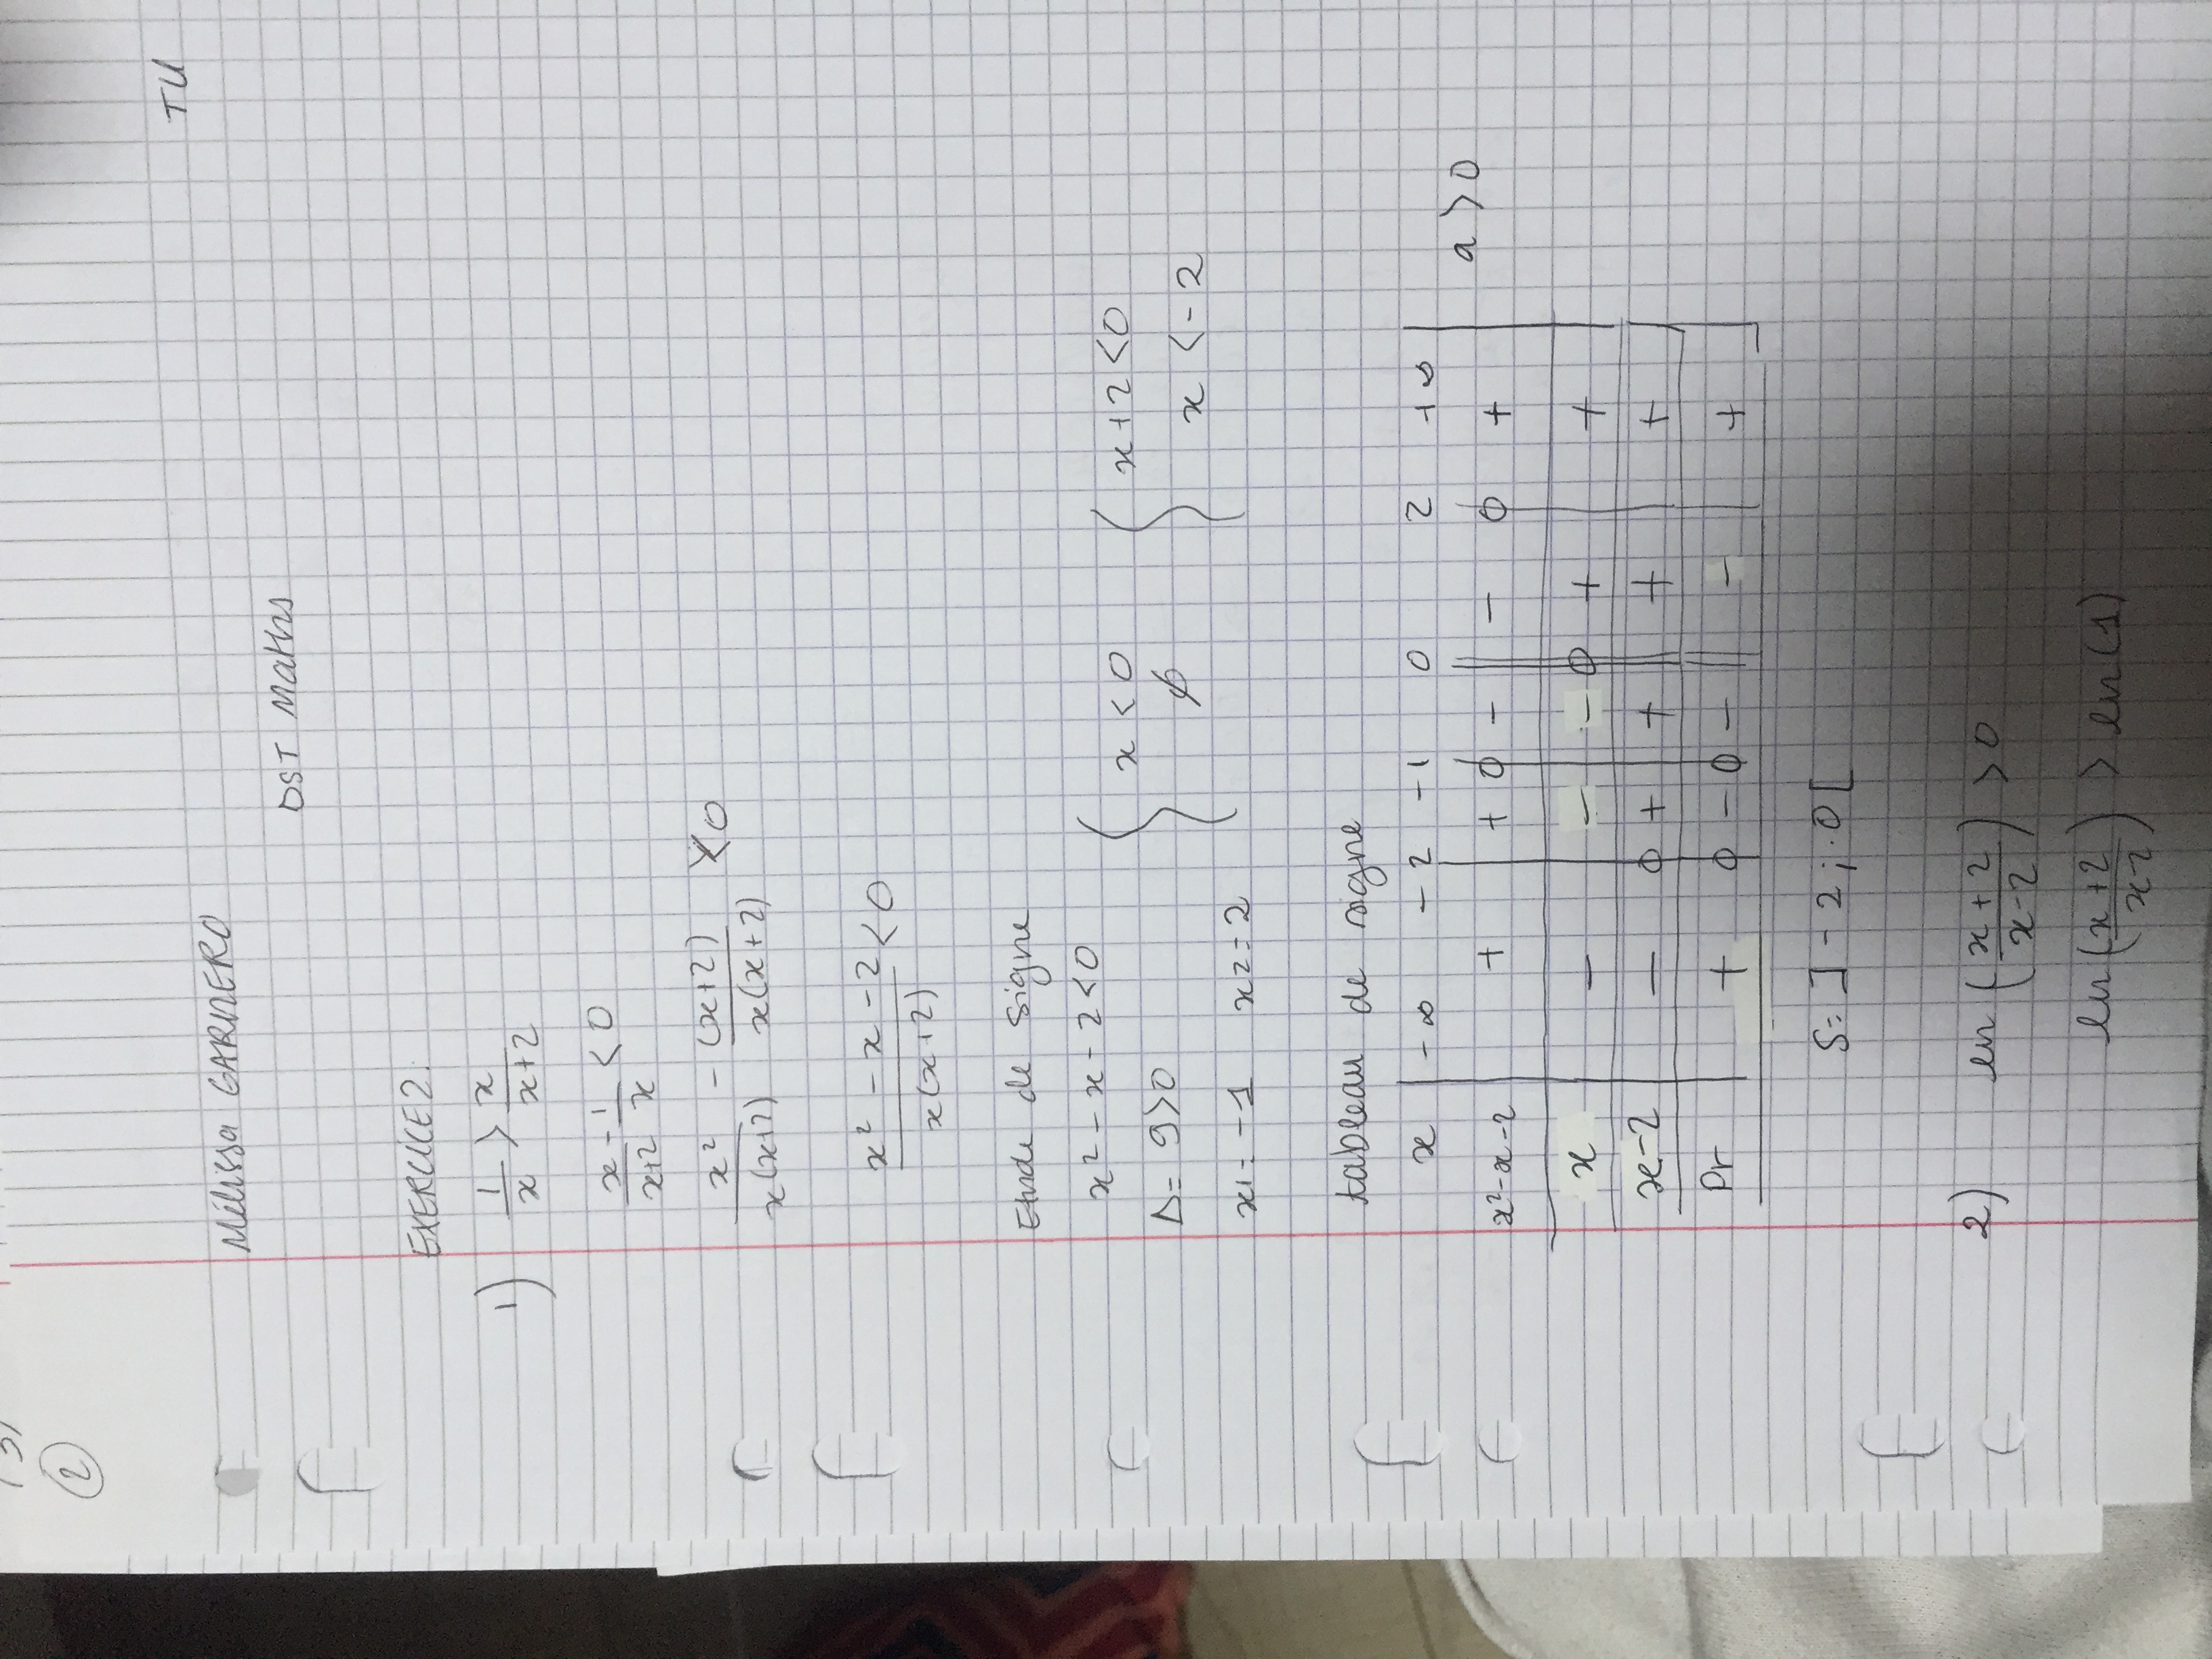 2
TU
Mélissa GARNERO
DST Maths
EXERCICE 2.
1) 1/x > x/(x+2)
x/(x+2) - 1/x < 0
x²/(x(x+2)) - (x+2)/(x(x+2)) < 0
(x² - x - 2)/(x(x+2)) < 0
Etude de signe
x² - x - 2 < 0 { x < 0 { x+2 < 0
Δ = 9 > 0 ϕ x < -2
x1 = -1 x2 = 2
tableau de signe
x | -∞ -2 -1 0 2 +∞ |
x²-x-2 | + | + ϕ - || - ϕ + | a > 0
x | - | - | - ϕ + | +
x-2 | - ϕ + | + || + | +
Pr | + ϕ - ϕ - || - | +
S = ]-2 ; 0[
2) ln((x+2)/(x-2)) > 0
ln((x+2)/(x-2)) > ln(1)